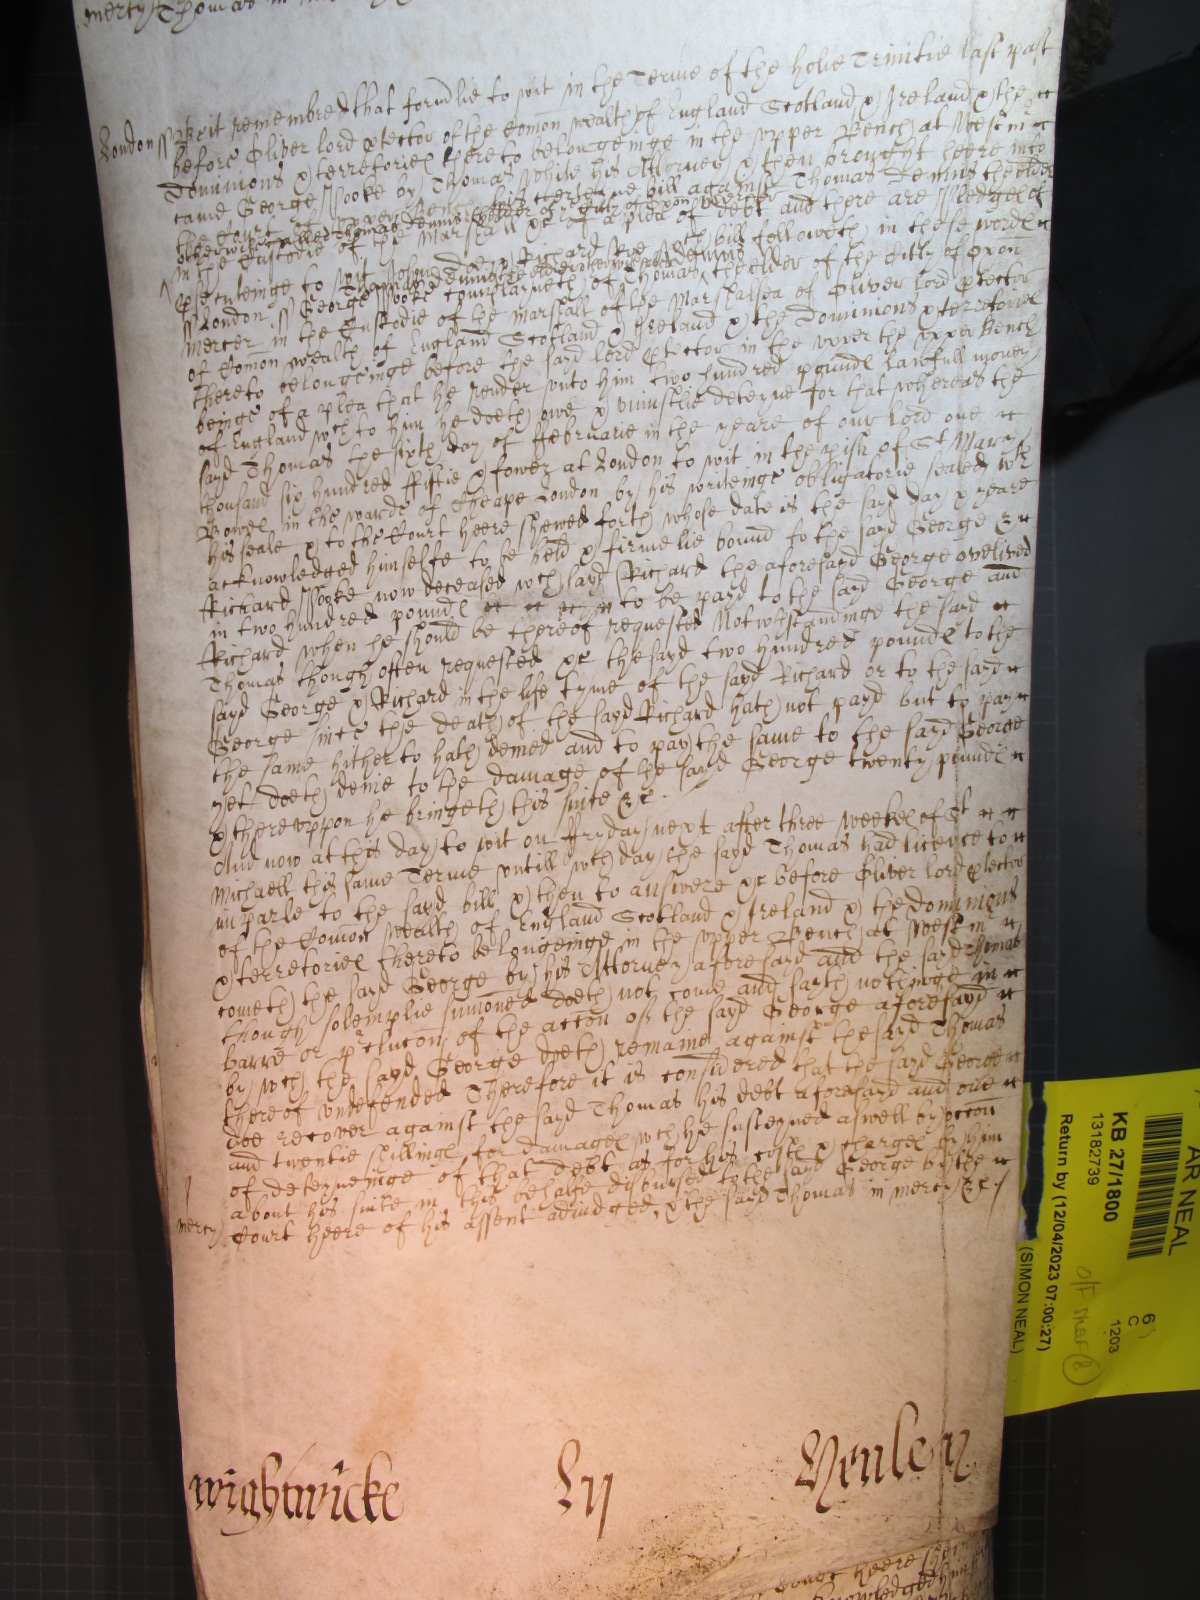 mercy Thomas in
London ss Be it remembred that formlie to wit in the Terme of the holie Trinitie last past
before Oliver lord ptector of the Comon wealth of England Scotland & Ireland & the
Dominions & terretories thereto belongeinge in the upper Bench at Westm
came George Cooke by Thomas White his Attorney & then brought heere into
the Court of upper Bench his certeyne bill against Thomas Dennis the elder
otherwise called Thomas Dennis the elder of the City of Oxon mercer
in the Custodie of the Marshall &c of a plea of debt and there are pledges of
psecuteinge to wit John Doe & Richard Roe wch bill followeth in these wordes
ss London ss George Cooke complayneth of Thomas Dennis the elder of the Citty of Oxon
Mercer in the Custodie of the Marshall of the Marshalsea of Oliver lord ptector
of Comon wealth of England Scotland & Ireland & the Dominions & terretories
thereto belongeinge before the sayd lord ptector in the upper Bench
beinge of a plea that he render unto him two hundred pounds lawfull money
of England wch to him he doeth owe & uniustlie deteyne for that whereas the
sayd Thomas the sixth day of Februarie in the yeare of our lord one
thousand six hundred fiftie & fower at London to wit in the pish of St Mary
Bowes in the warde of Cheape London by his writeinge obligatorie sealed wth
his seale & to the Court heere shewed forth whose date is the sayd day & yeare
acknowledged himselfe to be held & firmelie bound to the sayd George &
Richard Cooke now deceased wch sayd Richard the aforesayd George overlived
in two hundred pounds to be payd to the sayd George and
Richard when he should be thereof requested Notwthstandinge the sayd
Thomas though often requested &c the sayd two hundred pounds to the
sayd George & Richard in the life tyme of the sayd Richard or to the sayd
George since the death of the sayd Richard hath not payd but to pay
the same hitherto hath denied and to pay the same to the sayd George
yet doeth denie to the damage of the sayd George twenty pounds
& thereuppon he bringeth this suite &c.
And now at this day to wit on Fryday next after three weekes of St
Michaell this same Terme untill wch day the sayd Thomas had licence to
imparle to the sayd bill & then to answere &c before Oliver lord ptector
of the Comon wealth of England Scotland & Ireland & the dominions
& terretories thereto belongeinge in the upper Bench at Westm
cometh the sayd George by his Attorney aforesayd and the sayd Thomas
though solemplie sumoned doeth not come and sayth nothinge in
barre or pclucon of the accon of the sayd George aforesayd
by wch the sayd George doeth remaine against the sayd Thomas
thereof undefended Therefore it is considered that the sayd George
doe recover against the sayd Thomas his debt aforesayd and one
and twentie shillings for damages wch he susteyned aswell by occon
of deteyneinge of that debt as for his costs & charges by him
about his suite in this behalfe disbursed to the sayd George by the
mercy Court heere of his assent adiudged, & the sayd Thomas in mercy &c
Wightwicke Ly Henley
court heere shew
acknowledged himse
AR NEAL
KB 27/1800
13182739
Return by (12/04/2023 07:00:27)
(SIMON NEAL)
C
1203